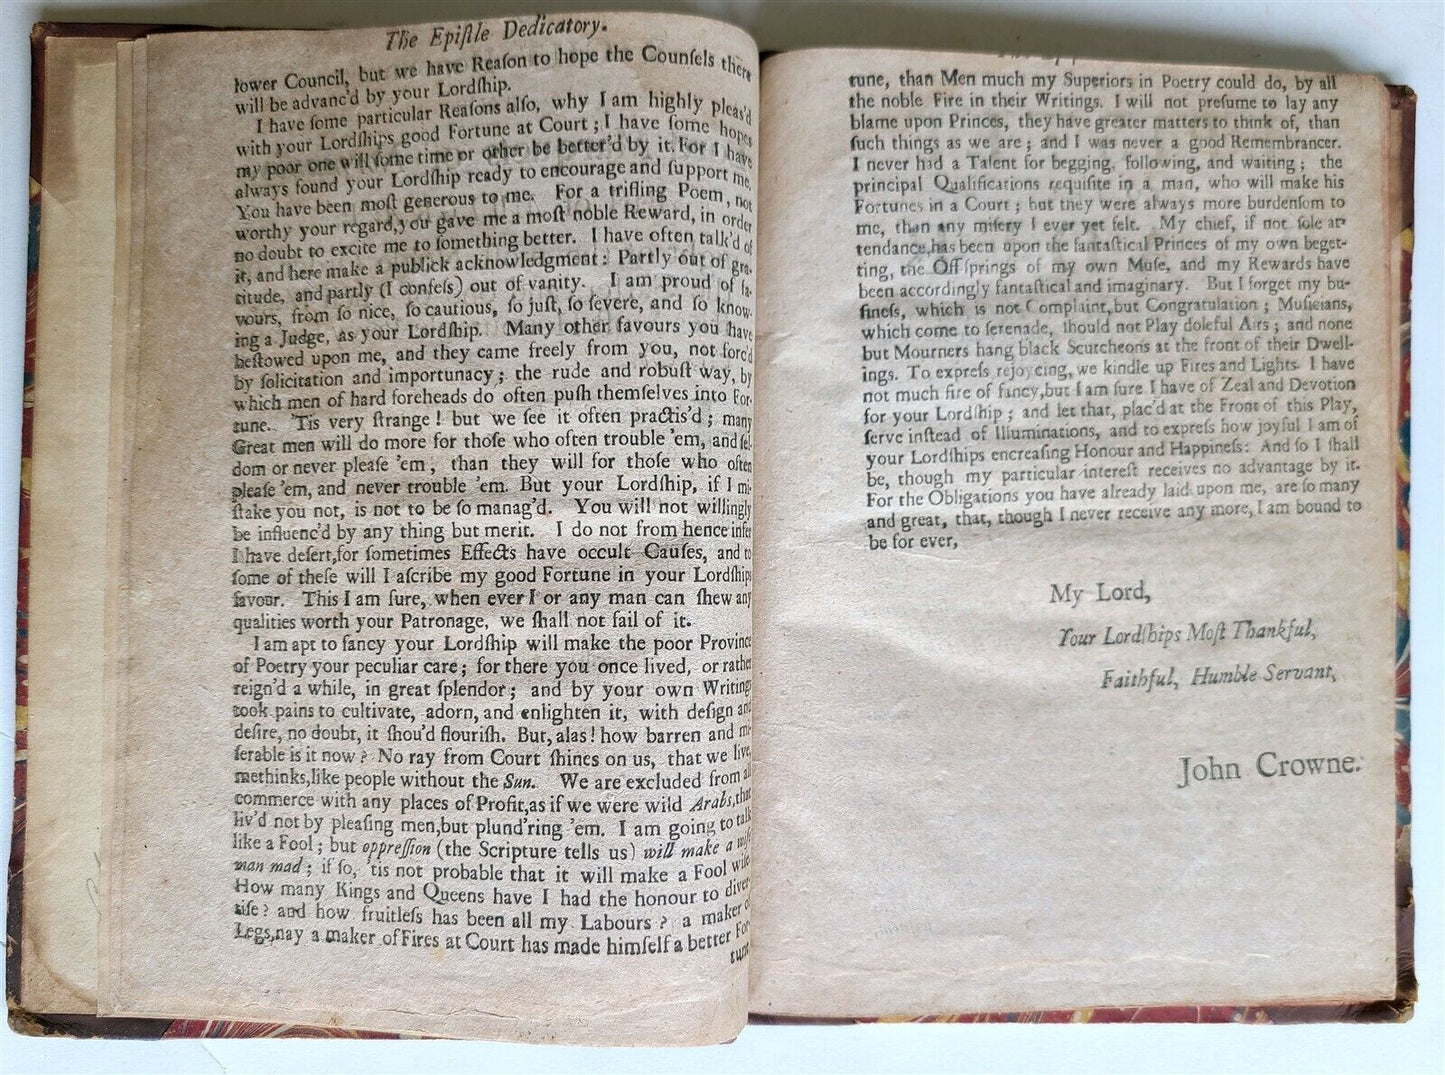 The Epiſtle Dedicatory.
lower Council, but we have Reaſon to hope the Counſels there
will be advanc'd by your Lordſhip.
I have ſome particular Reaſons alſo, why I am highly pleas'd
with your Lordſhips good Fortune at Court; I have ſome hopes
my poor one will ſome time or other be better'd by it. For I have
always found your Lordſhip ready to encourage and ſupport me,
You have been moſt generous to me. For a trifling Poem, not
worthy your regard, you gave me a moſt noble Reward, in order
no doubt to excite me to ſomething better. I have often talk'd of
it, and here make a publick acknowledgment: Partly out of gra-
titude, and partly (I confeſs) out of vanity. I am proud of fa-
vours, from ſo nice, ſo cautious, ſo juſt, ſo ſevere, and ſo know-
ing a Judge, as your Lordſhip. Many other favours you have
beſtowed upon me, and they came freely from you, not forc'd
by ſolicitation and importunacy; the rude and robuſt way, by
which men of hard foreheads do often puſh themſelves into For-
tune. 'Tis very ſtrange! but we ſee it often practis'd; many
Great men will do more for thoſe who often trouble 'em, and ſel-
dom or never pleaſe 'em, than they will for thoſe who often
pleaſe 'em, and never trouble 'em. But your Lordſhip, if I mi-
ſtake you not, is not to be ſo manag'd. You will not willingly
be influenc'd by any thing but merit. I do not from hence infer
I have deſert, for ſometimes Effects have occult Cauſes, and to
ſome of theſe will I aſcribe my good Fortune in your Lordſhips
favour. This I am ſure, when ever I or any man can ſhew any
qualities worth your Patronage, we ſhall not fail of it.
I am apt to fancy your Lordſhip will make the poor Province
of Poetry your peculiar care; for there you once lived, or rather
reign'd a while, in great ſplendor; and by your own Writings
took pains to cultivate, adorn, and enlighten it, with deſign and
deſire, no doubt, it ſhou'd flouriſh. But, alas! how barren and mi-
ſerable is it now? No ray from Court ſhines on us, that we live,
methinks, like people without the Sun. We are excluded from all
commerce with any places of Profit, as if we were wild Arabs, that
liv'd not by pleaſing men, but plund'ring 'em. I am going to talk
like a Fool; but oppreſſion (the Scripture tells us) will make a wiſe
man mad; if ſo, 'tis not probable that it will make a Fool wiſe.
How many Kings and Queens have I had the honour to diver-
tiſe? and how fruitleſs has been all my Labours? a maker of
Legs, nay a maker of Fires at Court has made himſelf a better For-
tune,
tune, than Men much my Superiors in Poetry could do, by all
the noble Fire in their Writings. I will not preſume to lay any
blame upon Princes, they have greater matters to think of, than
ſuch things as we are; and I was never a good Remembrancer.
I never had a Talent for begging, following, and waiting; the
principal Qualifications requiſite in a man, who will make his
Fortunes in a Court; but they were always more burdenſom to
me, than any miſery I ever yet felt. My chief, if not ſole at-
tendance, has been upon the fantaſtical Princes of my own beget-
ting, the Off ſprings of my own Muſe, and my Rewards have
been accordingly fantaſtical and imaginary. But I forget my bu-
ſineſs, which is not Complaint, but Congratulation; Muſicians,
which come to ſerenade, ſhould not Play doleful Airs; and none
but Mourners hang black Scutcheons at the front of their Dwell-
ings. To expreſs rejoycing, we kindle up Fires and Lights. I have
not much fire of fancy, but I am ſure I have of Zeal and Devotion
for your Lordſhip; and let that, plac'd at the Front of this Play,
ſerve inſtead of Illuminations, and to expreſs how joyful I am of
your Lordſhips encreaſing Honour and Happineſs: And ſo I ſhall
be, though my particular intereſt receives no advantage by it.
For the Obligations you have already laid upon me, are ſo many
and great, that, though I never receive any more, I am bound to
be for ever,
My Lord,
Your Lordſhips Moſt Thankful,
Faithful, Humble Servant,
John Crowne.